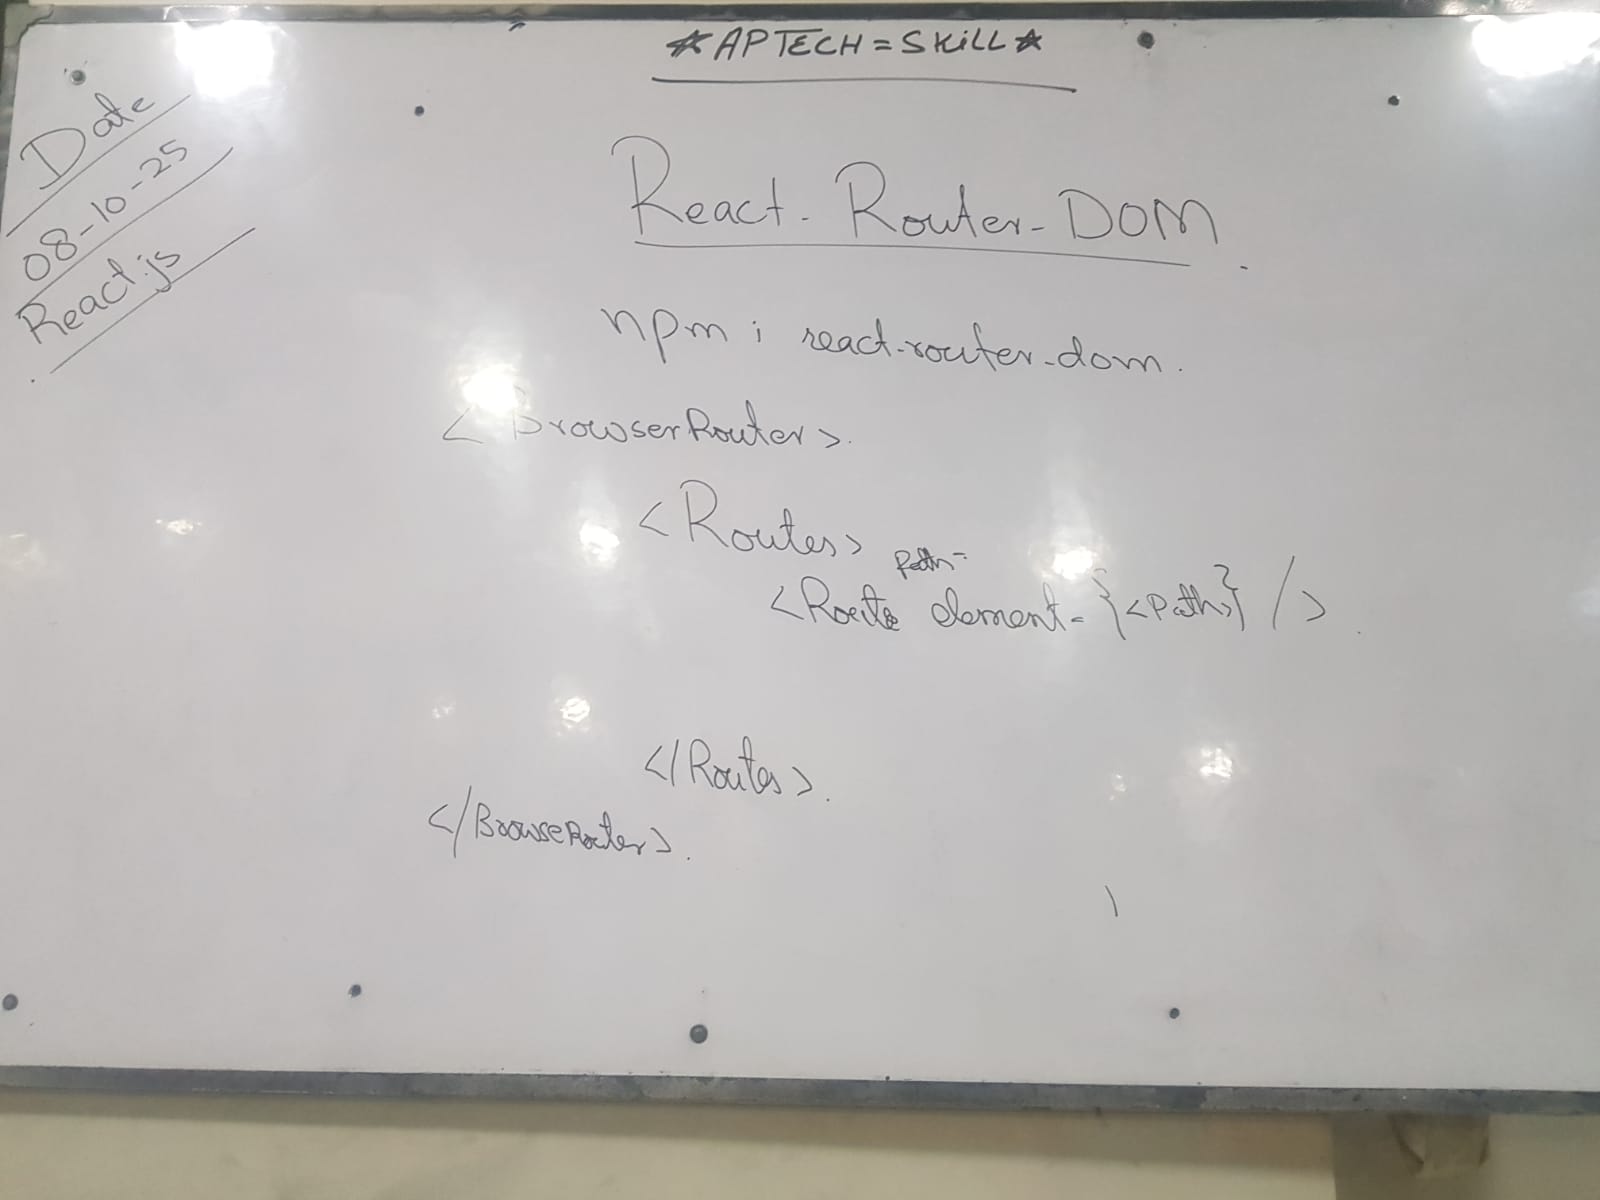 ★APTECH=SKILL★
Date
08-10-25
React.js
React-Router-DOM
npm i react-router-dom.
<BrowserRouter>.
<Routes>
path=
<Route element={<Path>} />.
</Routes>.
</BrowseRouter>.